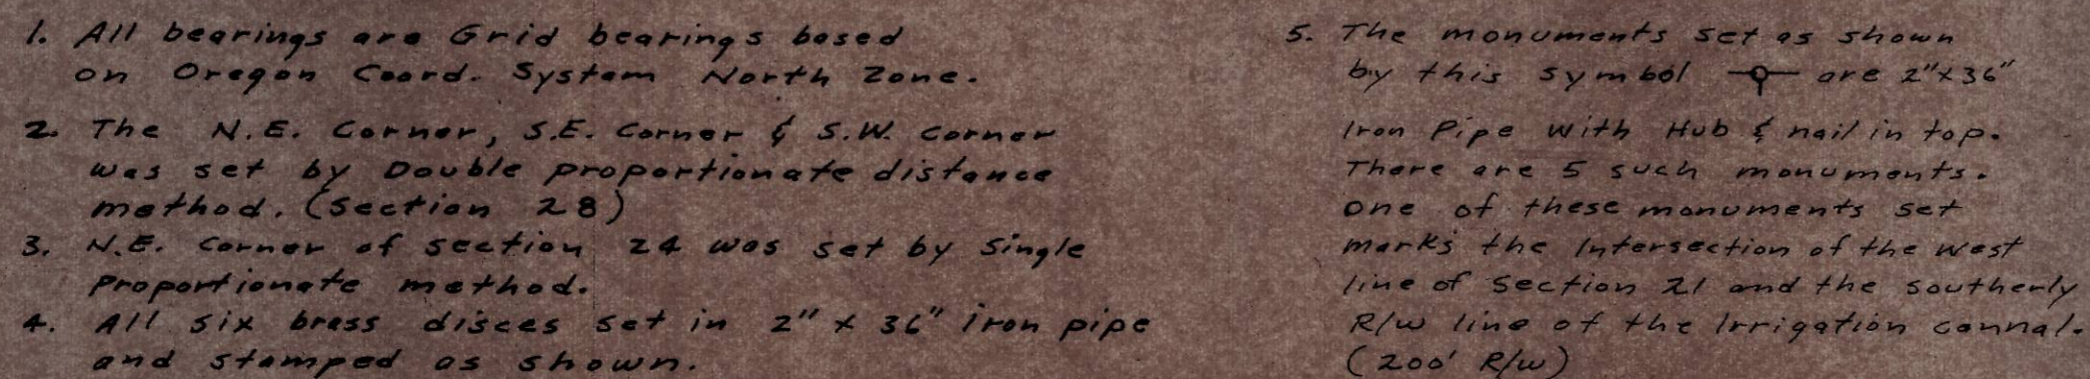 1. All bearings are Grid bearings based
on Oregon Coord. System North Zone.
2. The N.E. Corner, S.E. Corner & S.W. Corner
was set by Double proportionate distance
method. (Section 28)
3. N.E. Corner of section 24 was set by Single
Proportionate method.
4. All six brass discs set in 2" x 36" iron pipe
and stamped as shown.
5. The monuments set as shown
by this symbol are 2"x36"
Iron Pipe with Hub & nail in top.
There are 5 such monuments.
One of these monuments set
marks the Intersection of the west
line of Section 21 and the southerly
R/w line of the Irrigation cannal.
(200' R/w)